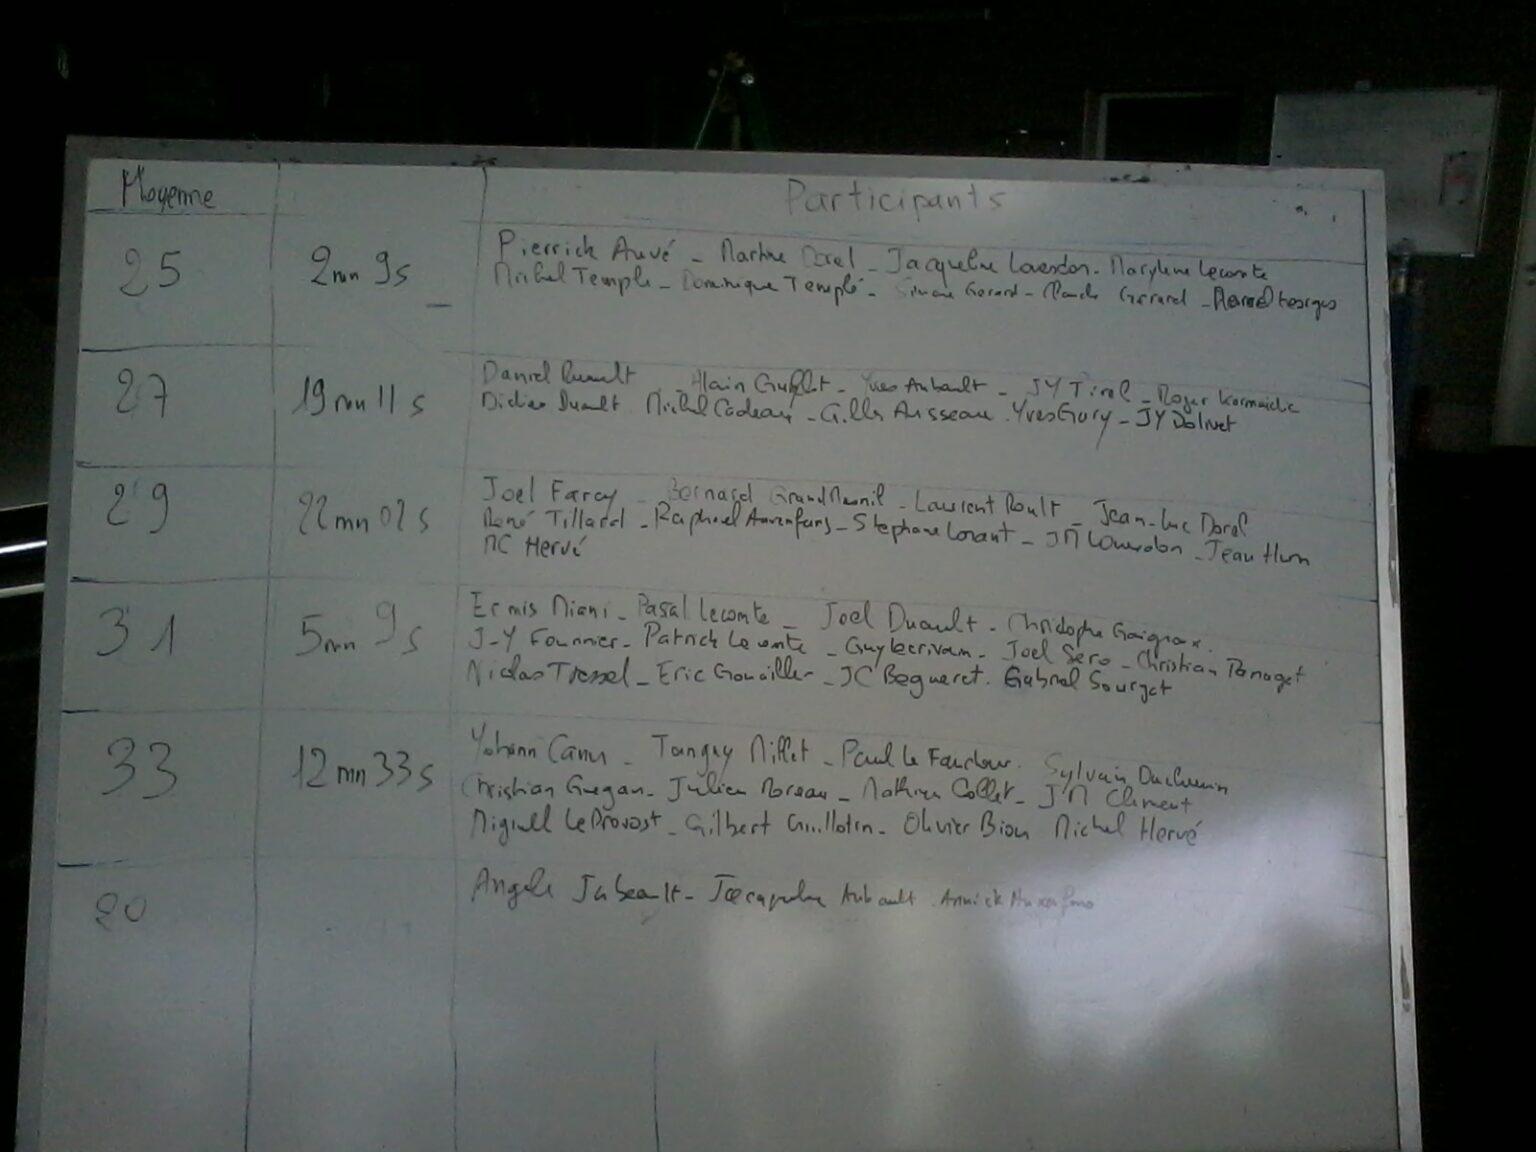 Moyenne Participants
25 2mn 9s Pierrick Auvé - Martine Dorel - Jacqueline Lavendon - Marylene Lecomte
Michel Temple - Dominique Templé - Simone Gerard - Gerard - Georges
27 19mn 11s Daniel Alain - Yves Aubault - JY Tirel - Roger
Didier Duault Michel Cadeau - Gilles Ausseau - Yves Gory - JY Dolivet
29 22mn 02s Joel Farcy - Bernard GrandMesnil - Laurent Roult Jean-Luc Dorel
René Tillard - Raphael Auvenfans - Stephane Lorant - JM - Jean Hum
MC Hervé
31 5mn 9s Ermis Miani - Pascal Lecomte - Joel Duault - Christophe
J-Y Fournier - Patrick Lecomte - Guy Lecrivain - Joel Sero - Christian
Nicolas Tressel - Eric - JC Begueret. Gabriel Sourget
33 12mn 33s Yohann Canu - Tanguy Millet - Paul Le Sylvain Duchemin
Christian Guegan - Julien Moreau - Mathieu Collet - JM Clement
Miguell LeProvost - Gilbert Guillotin - Olivier Bion Michel Hervé
20 Angele - Jacqueline Aubault - Annick